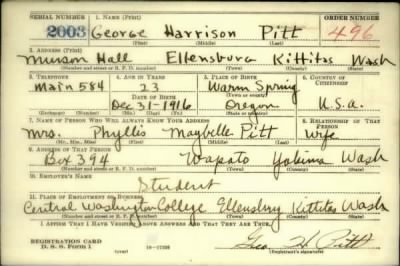 SERIAL NUMBER 1. NAME (Print) ORDER NUMBER
2003 George Harrison Pitt 496
(First) (Middle) (Last)
2. ADDRESS (Print)
Munson Hall Ellensburg Kittitas Wash
(Number and street or R. F. D. number) (Town) (County) (State)
3. TELEPHONE 4. AGE IN YEARS 5. PLACE OF BIRTH 6. COUNTRY OF CITIZENSHIP
Main 584 23 Warm Spring
DATE OF BIRTH (Town or county)
Dec 31-1916 Oregon U.S.A.
(Exchange) (Number) (Mo.) (Day) (Yr.) (State or country)
7. NAME OF PERSON WHO WILL ALWAYS KNOW YOUR ADDRESS 8. RELATIONSHIP OF THAT PERSON
Mrs. Phyllis Maybelle Pitt Wife
(Mr., Mrs., Miss) (First) (Middle) (Last)
9. ADDRESS OF THAT PERSON
Box 394 Wapato Yakima Wash
(Number and street or R. F. D. number) (Town) (County) (State)
10. EMPLOYER'S NAME
Student
11. PLACE OF EMPLOYMENT OR BUSINESS
Central Washington College Ellensburg Kittitas Wash
(Number and street or R. F. D. number) (Town) (County) (State)
I AFFIRM THAT I HAVE VERIFIED ABOVE ANSWERS AND THAT THEY ARE TRUE.
REGISTRATION CARD Geo H Pitt
D. S. S. Form 1 (over) (Registrant's signature)